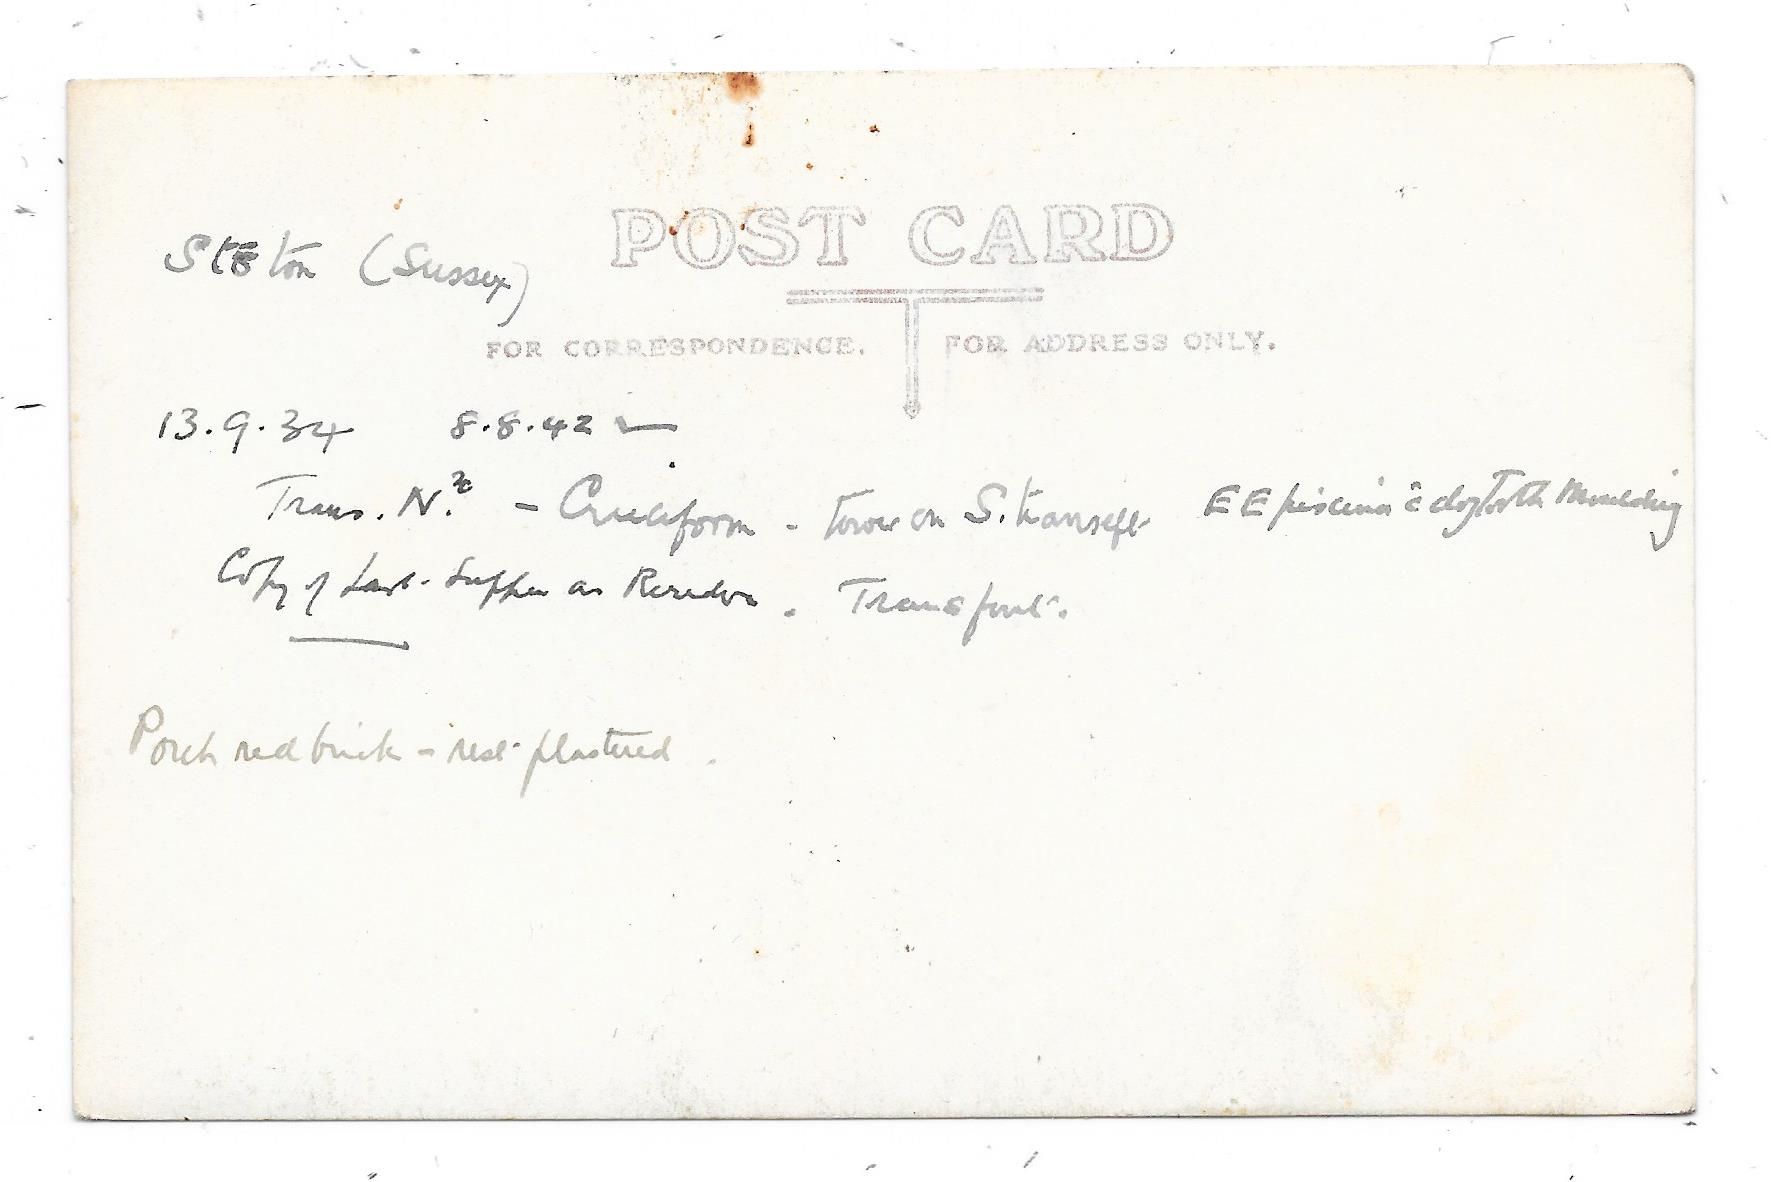 POST CARD
Steton (Sussex)
FOR CORRESPONDENCE. FOR ADDRESS ONLY.
13.9.34 8.8.42
Trans. N. - Cruciform - tower on S. transept EE piscina c̄ dogtooth Moulding
Copy of Last Supper as Reredos. Trans font.
Porch red brick - rest plastered.